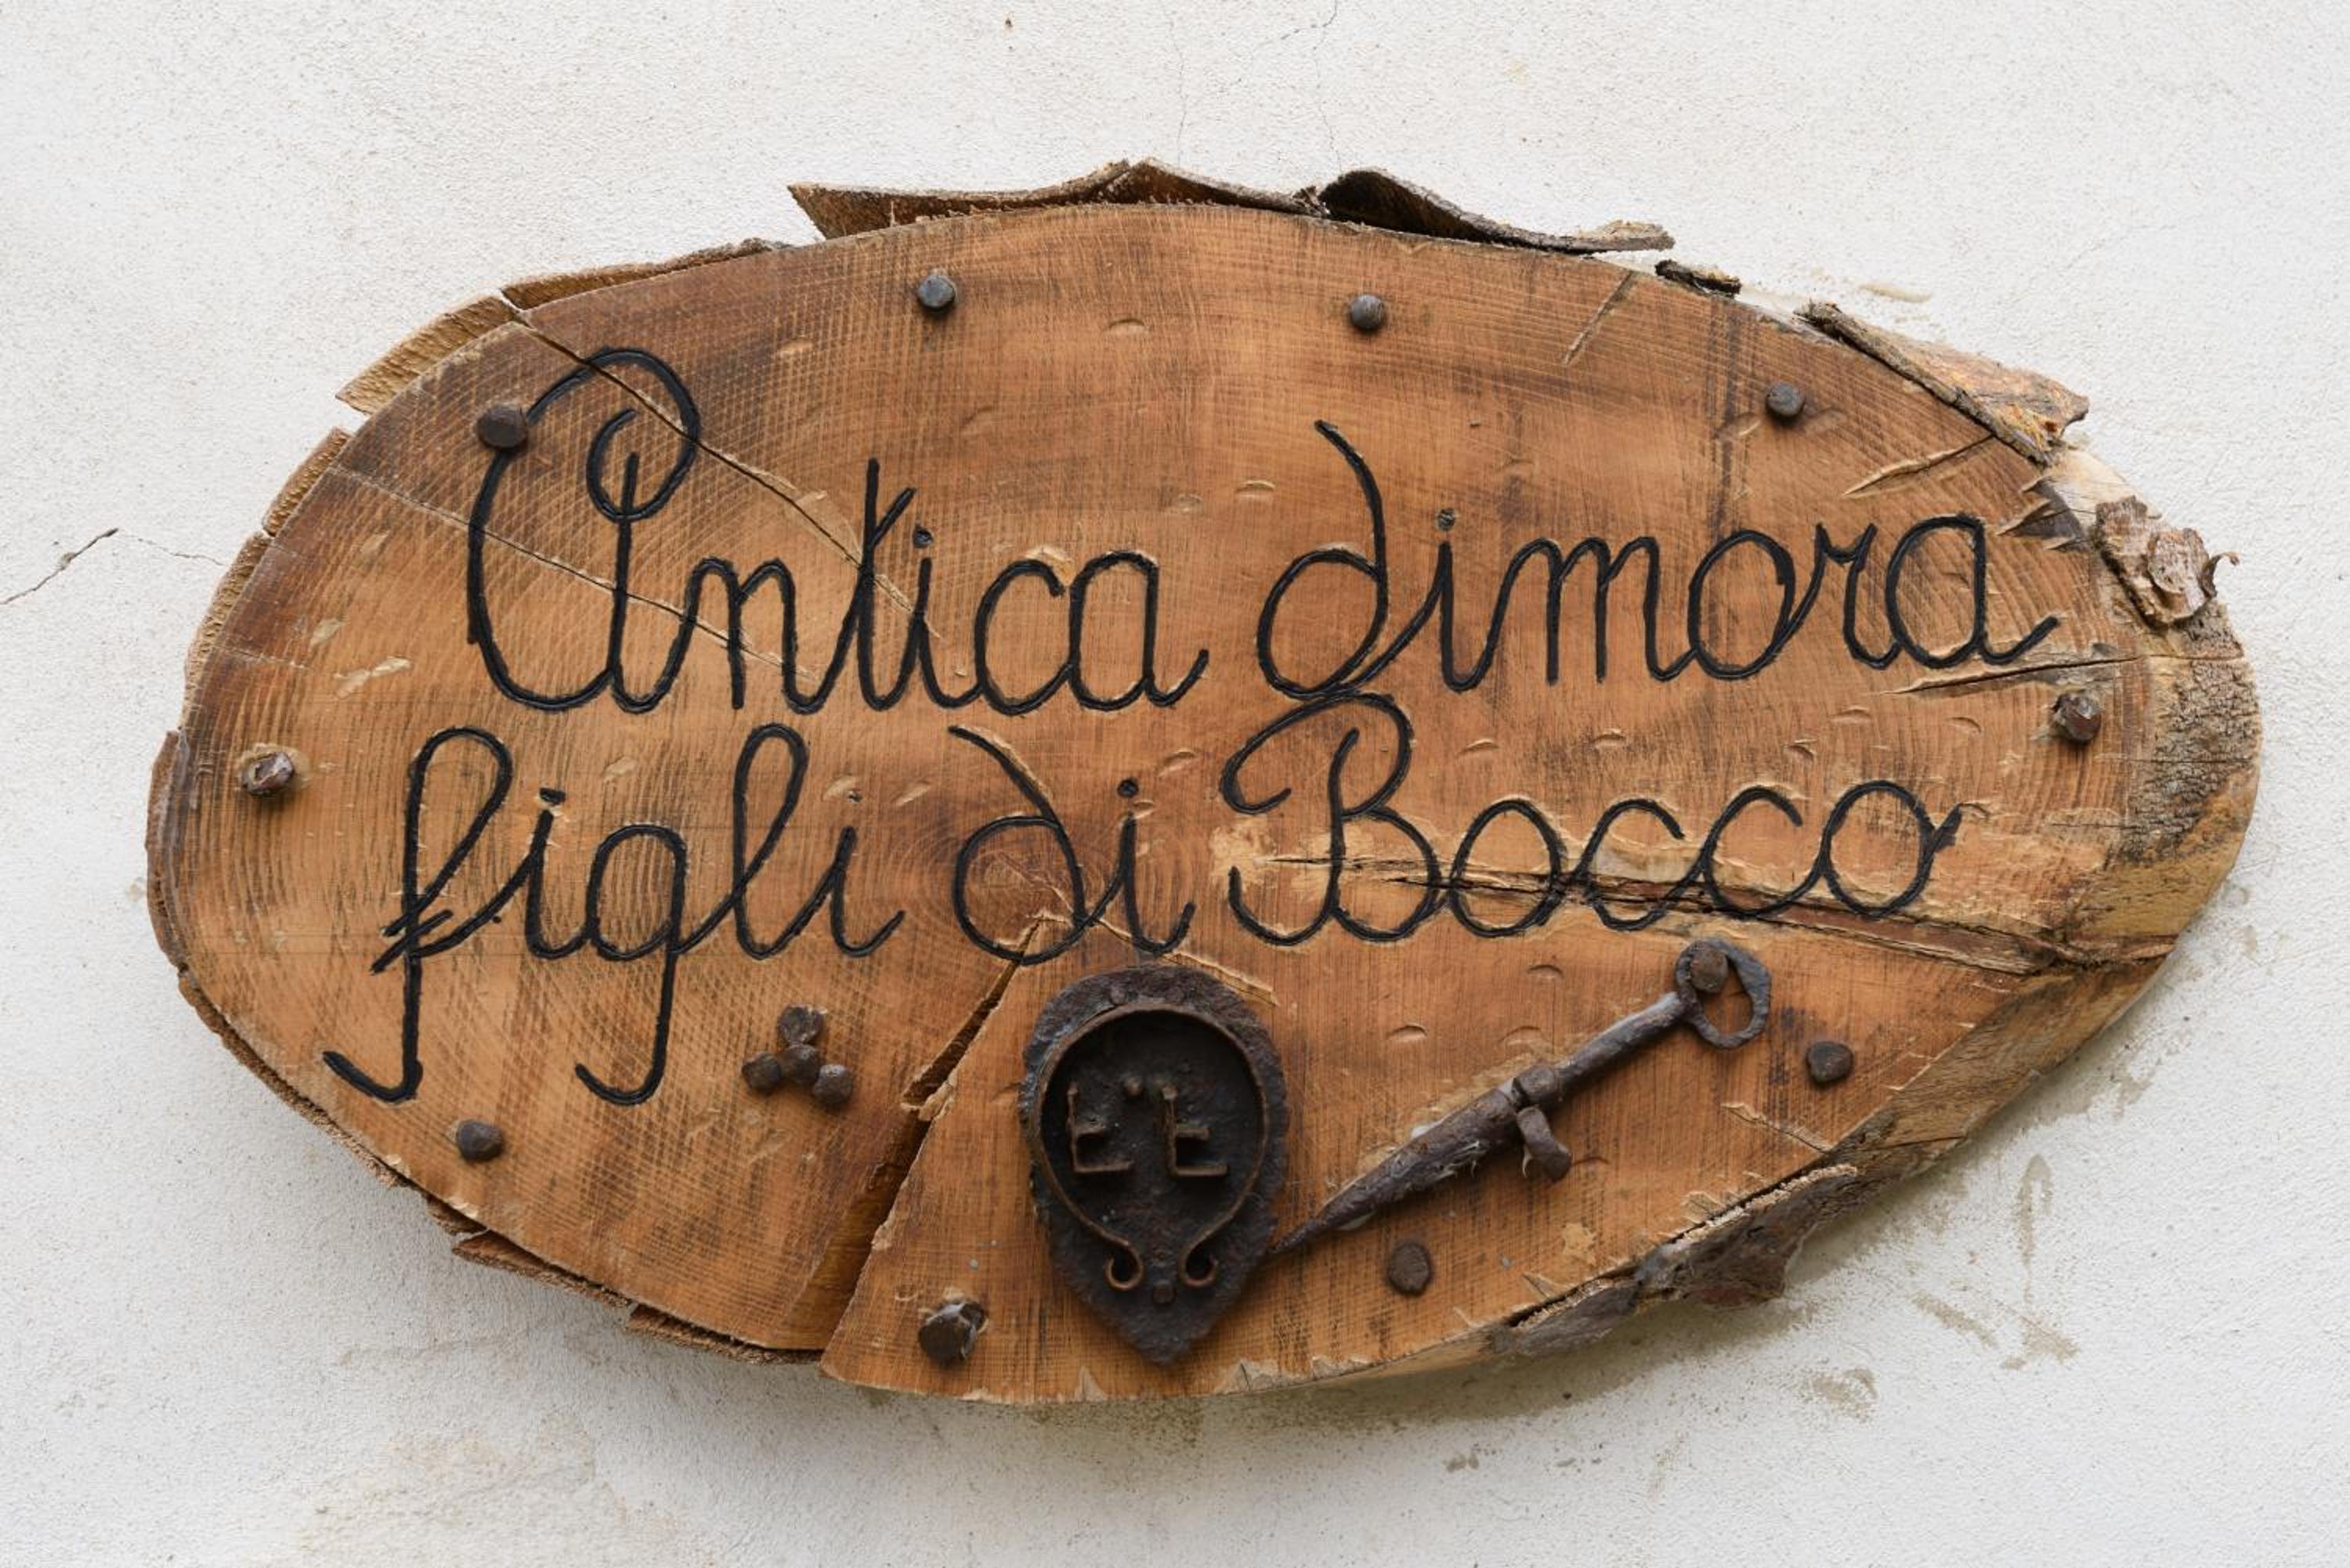 Antica dimora
figli di Bocco